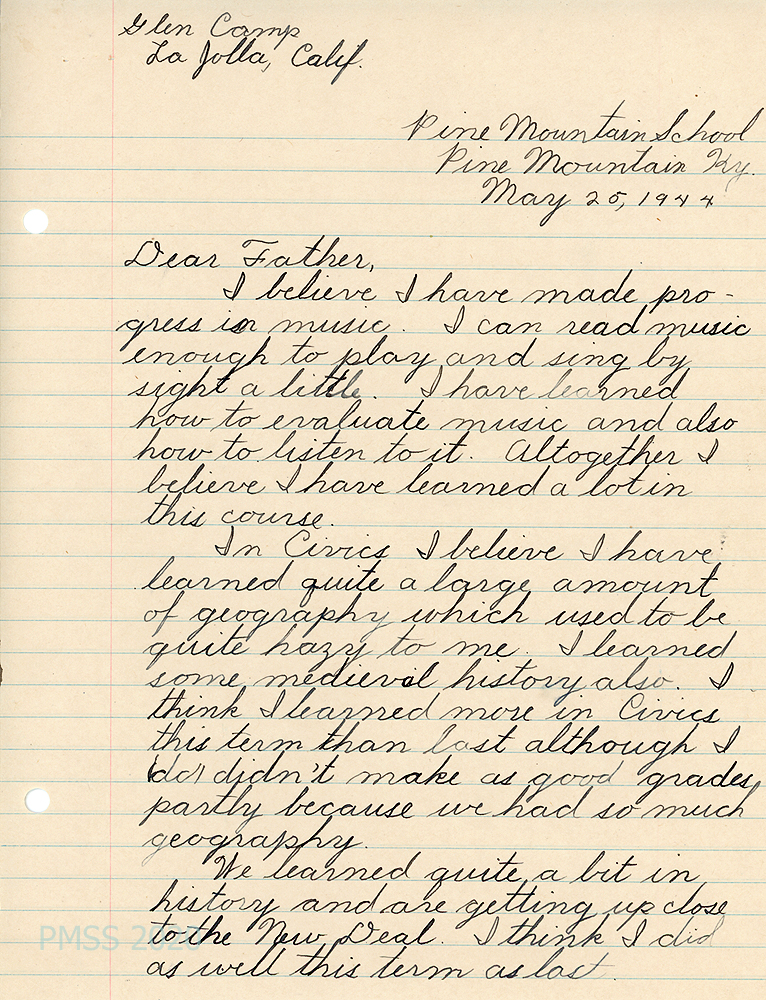 Glen Camp
La Jolla, Calif.
Pine Mountain School
Pine Mountain Ky.
May 25, 1944
Dear Father,
I believe I have made pro-
gress in music. I can read music
enough to play and sing by
sight a little. I have learned
how to evaluate music and also
how to listen to it. Altogether I
believe I have learned a lot in
this course.
In Civics I believe I have
learned quite a large amount
of geography which used to be
quite hazy to me. I learned
some medieval history also. I
think I learned more in Civics
this term than last although I
didn't make as good grades,
partly because we had so much
geography.
We learned quite a bit in
history and are getting up close
to the New Deal. I think I did
as well this term as last.
PMSS 2020